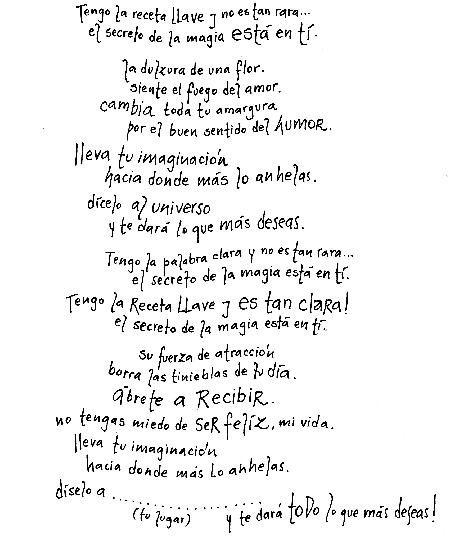 Tengo la receta llave y no es tan rara...
el secreto de la magia está en tí.
la dulzura de una flor.
siente el fuego del amor.
cambia toda tu amargura
por el buen sentido del HUMOR.
lleva tu imaginación
hacia donde más lo anhelas.
dícelo al universo
y te dará lo que más deseas.
Tengo la palabra clara y no es tan rara...
el secreto de la magia está en tí.
Tengo la Receta llave y es tan clara!
el secreto de la magia está en tí.
su fuerza de atracción
borra las tinieblas de tu día.
ábrete a Recibir.
no tengas miedo de SeR feliz, mi vida.
lleva tu imaginación
hacia donde más lo anhelas.
díselo a ....................
(tu lugar) y te dará toDo lo que más deseas!